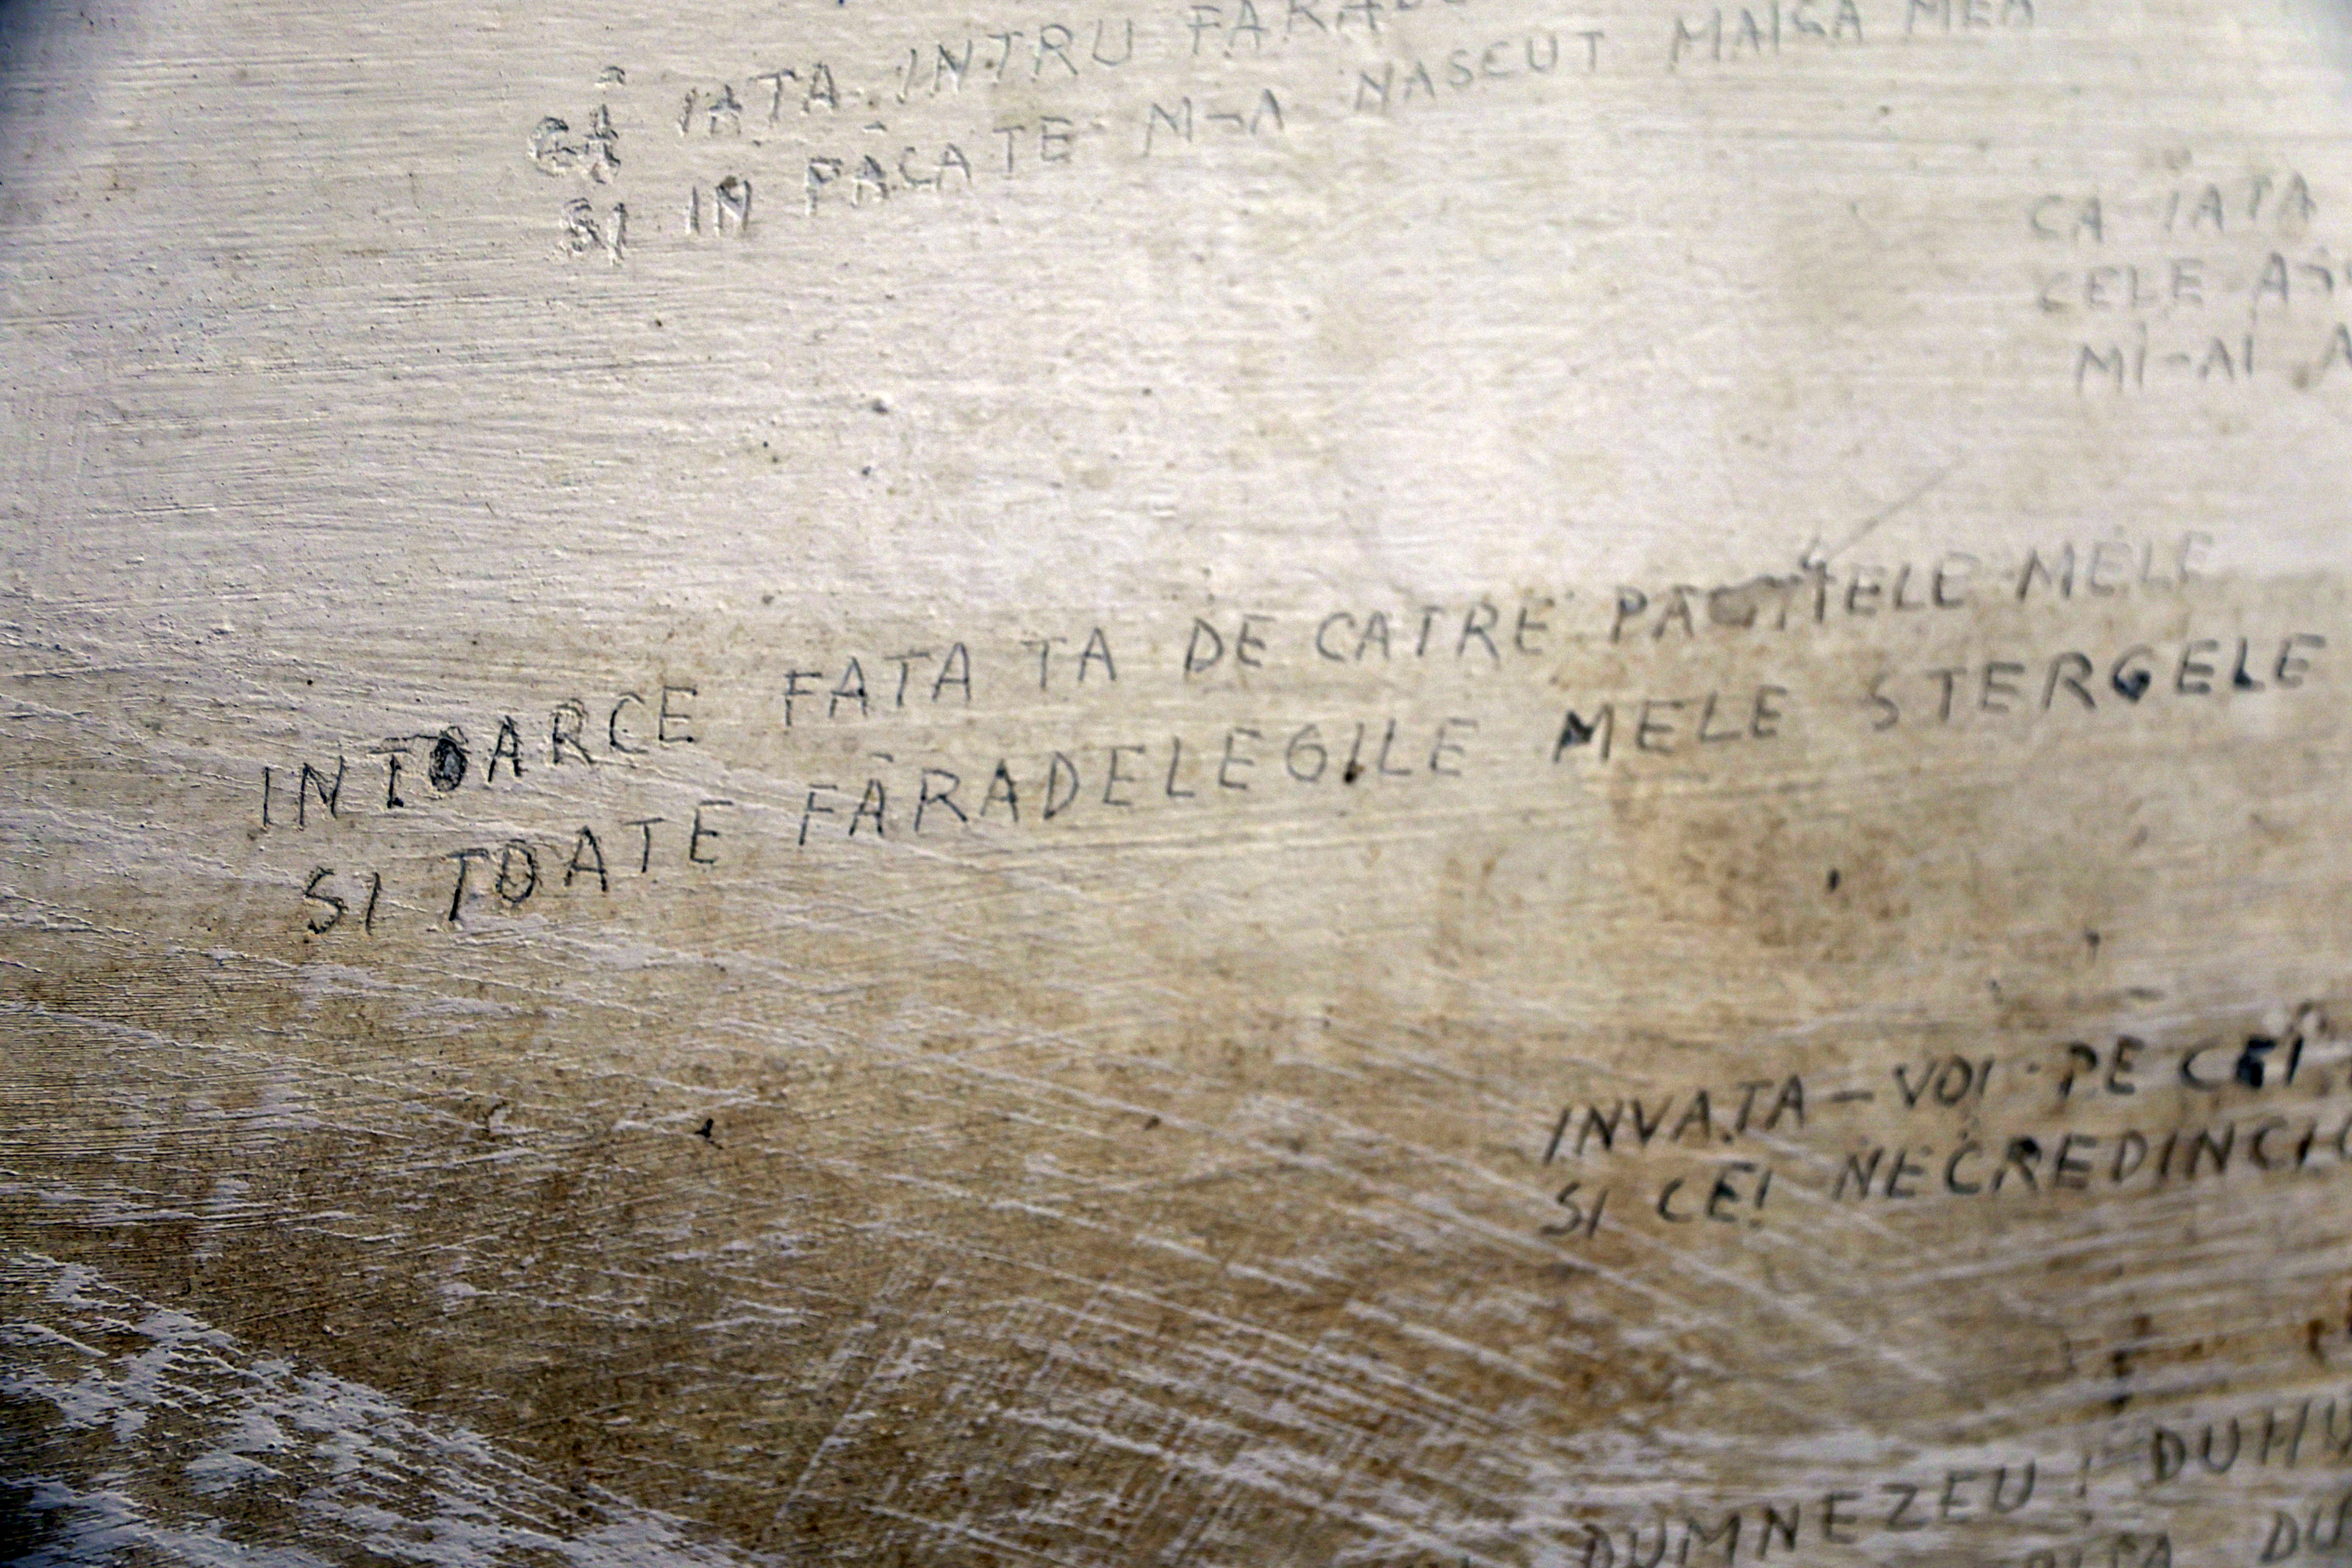 CĂ IATA INTRU
SI IN PĂCATE M-A NASCUT MAICA MEA
CA IATA
CELE
MI-AI
INTOARCE FATA TA DE CATRE MELE
SI TOATE FĂRADELEGILE MELE STERGELE
INVATA-VOI PE CEI
SI CEI
DUMNEZEU!